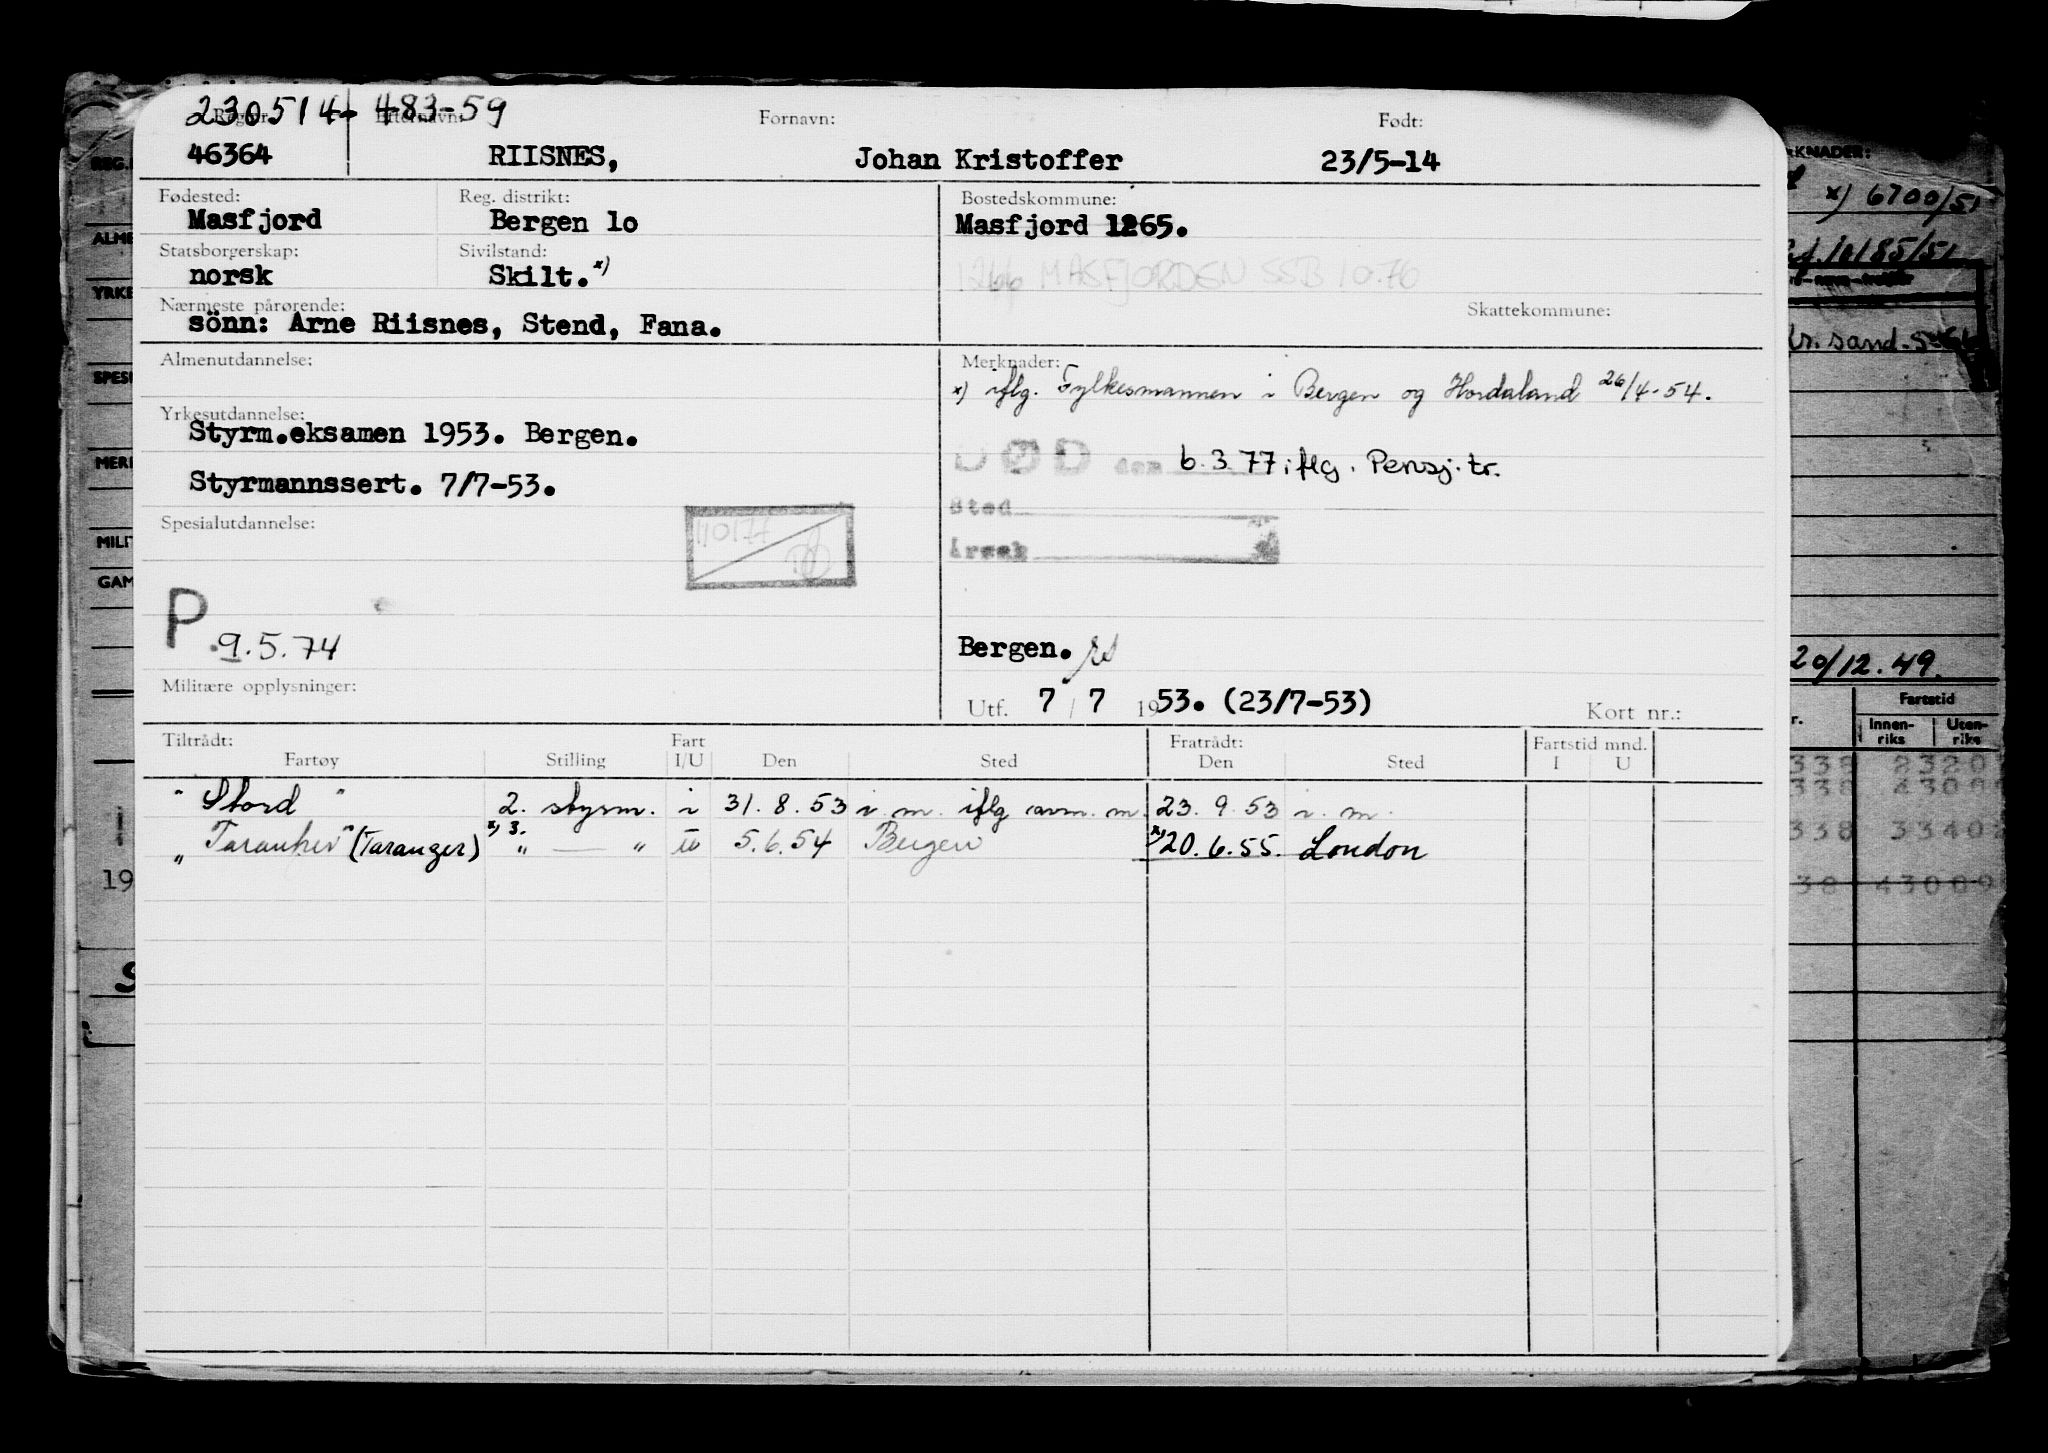 230514 483-59
Reg.nr. Etternavn: Fornavn: Født:
46364 RIISNES, Johan Kristoffer 23/5-14
Fødested: Reg. distrikt: Bostedskommune:
Masfjord Bergen lo Masfjord 1265.
Statsborgerskap: Sivilstand:
norsk Skilt. x) 1266 MASFJORDEN SSB 10.76
Nærmeste pårørende: Skattekommune:
sönn: Arne Riisnes, Stend, Fana.
Almenutdannelse: Merknader:
x) iflg. Fylkesmannen i Bergen og Hordaland 26/4-54.
Yrkesutdannelse:
Styrm.eksamen 1953. Bergen.
DØD den 6.3.77 iflg. Pensj.tr.
Styrmannssert. 7/7-53.
Sted
Spesialutdannelse: 110177
Årsak
P 9.5.74
Bergen.
Militære opplysninger:
Utf. 7 / 7 1953. (23/7-53) Kort nr.:
Tiltrådt: Fart Fratrådt: Fartstid mnd.
Fartøy Stilling I/U Den Sted Den Sted I U
" Stord " 2. styrm. i 31.8.53 i. m. iflg arm. m. 23.9.53 i. m.
" (Taranger) x) 3. " — " u 5.6.54 Bergen x) 20.6.55. London
REG.
ALME
YRKE
SPESI
MERK
MILIT
GAM
19
RKNADER:
x) 6700/51
10185/51
Kr. sand.
20/12.49.
Fartstid
r. Innen-riks Uten-riks
338 2320
338 4300
338 33402
38 43009